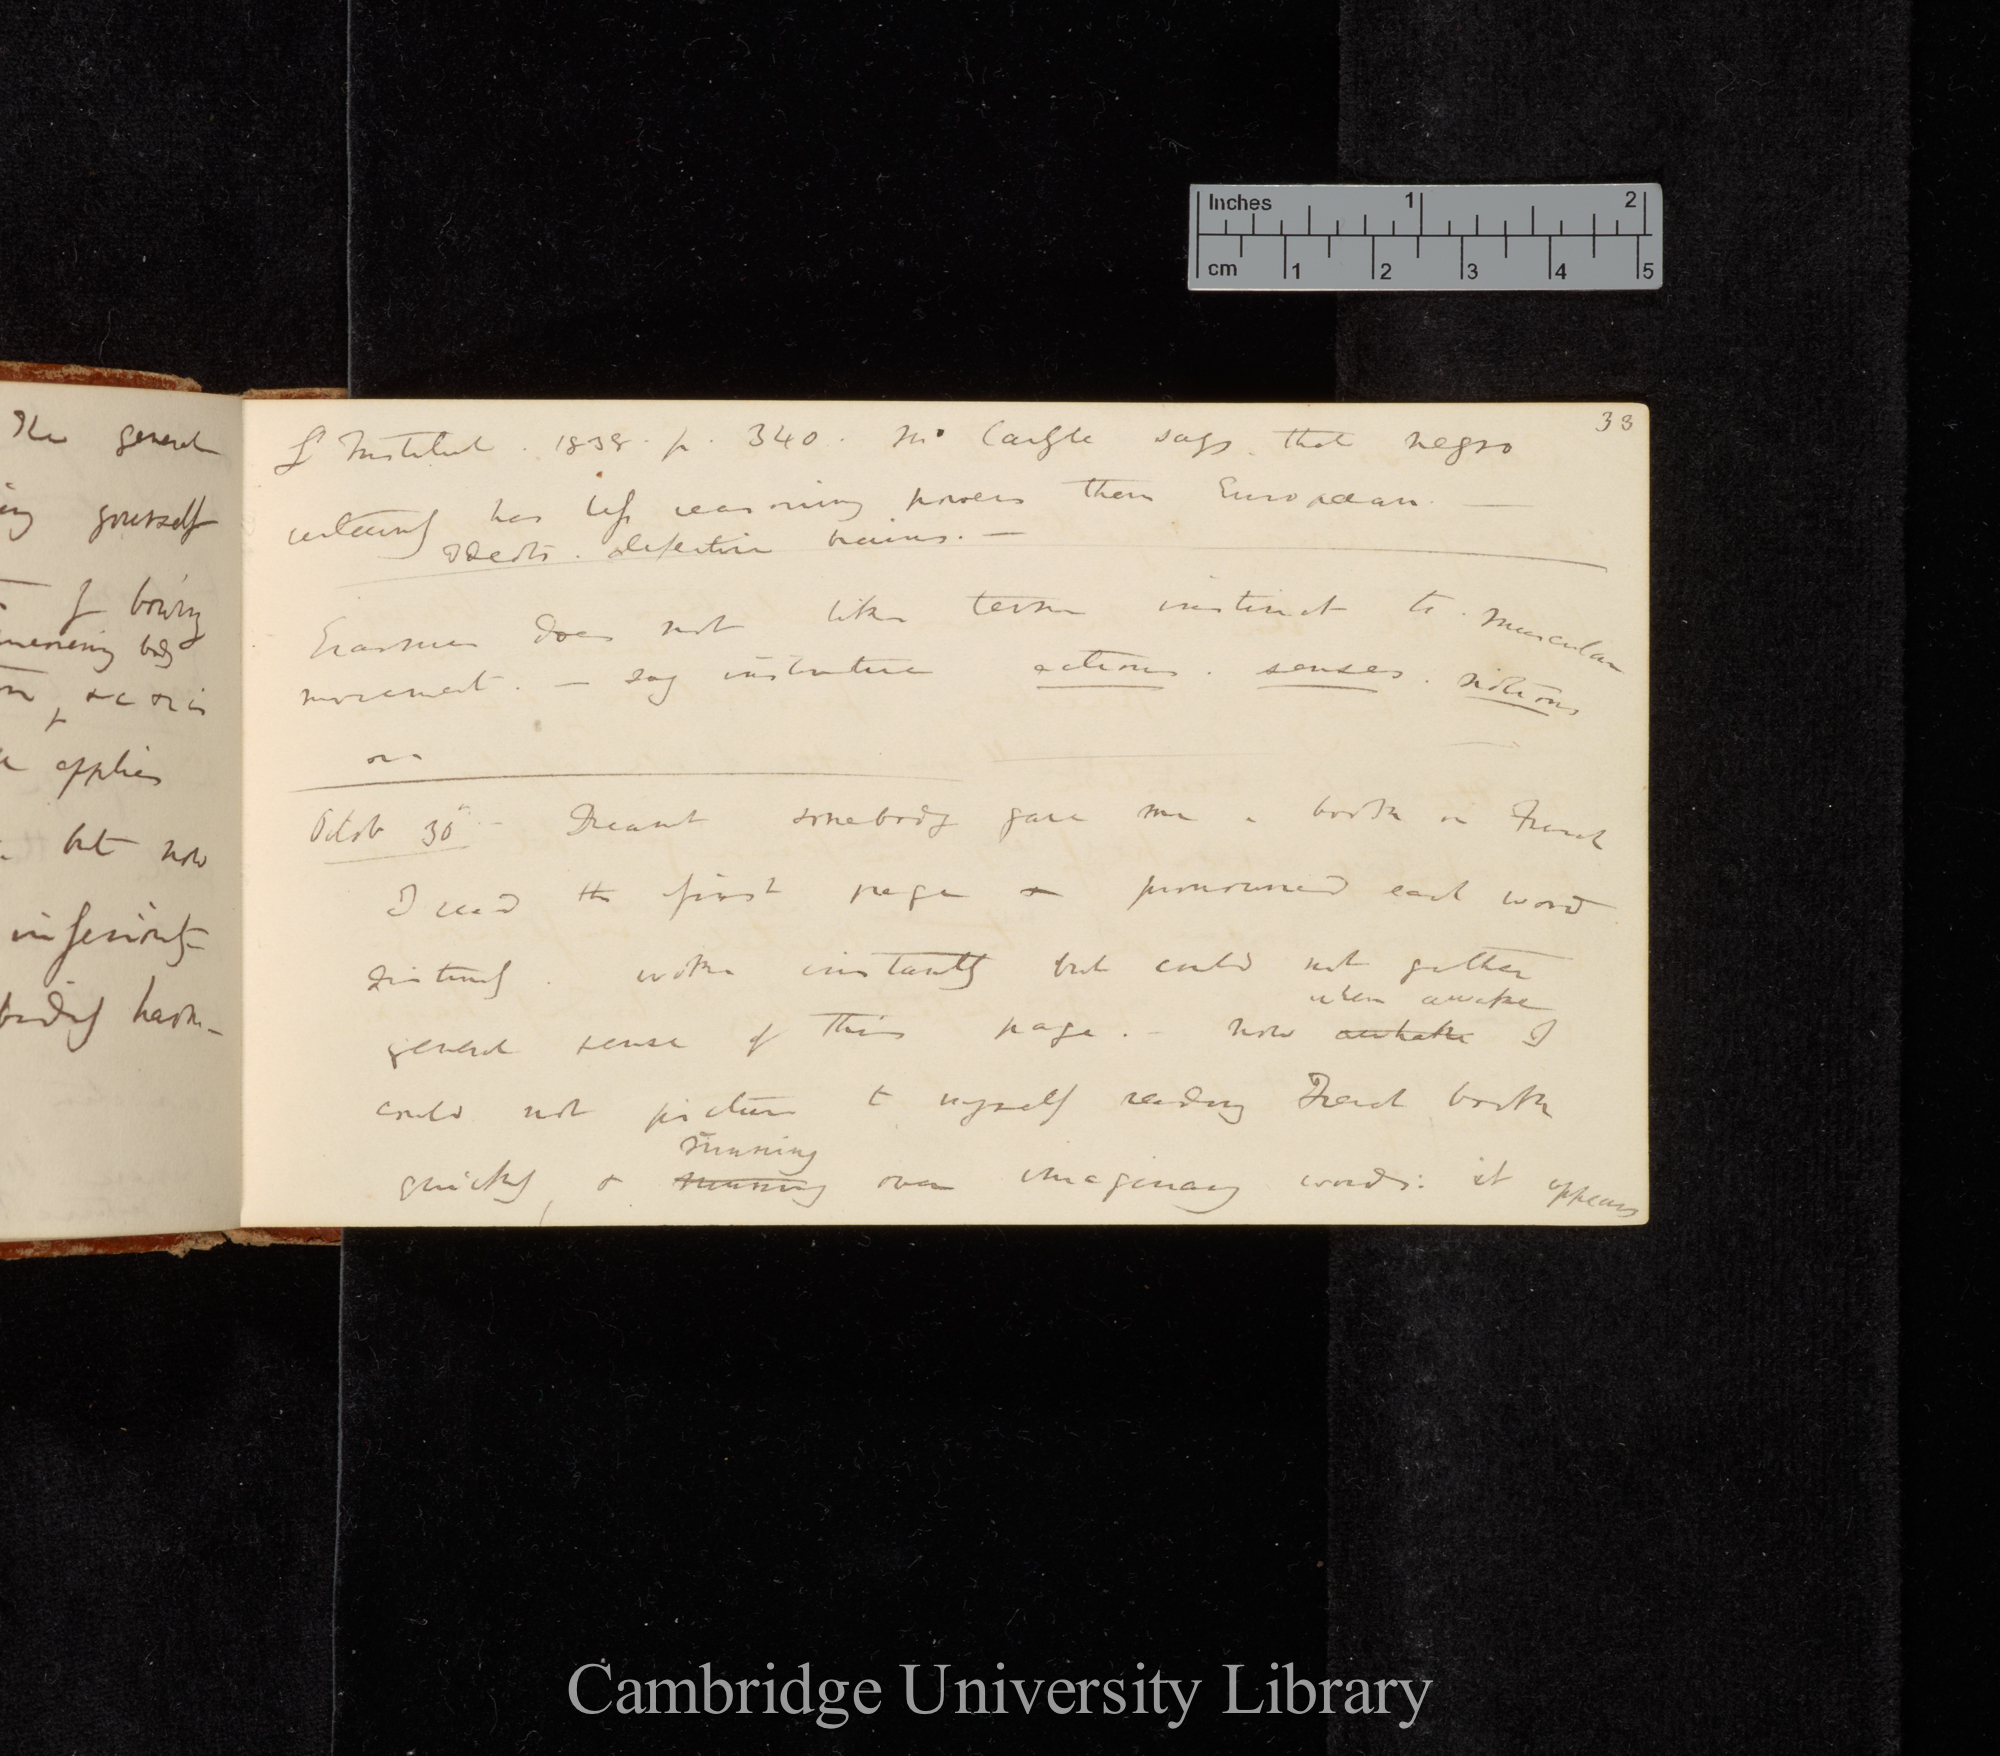 Inches 1 2
cm 1 2 3 4 5
The general
yourself
of bowing
body
applies
but now
inferiority
bodily harm -
33
L'Institut. 1838. p. 340. Mr Carlyle says that negro
certainly has less reasoning powers than European. —
Ideots. defective brains. —
Erasmus does not like term instinct to muscular
movement. — say instinctive actions. senses. notions
Octob 30th — Dreamt somebody gave me a book in French
I read the first page & pronounced each word
distinctly. woke instantly but could not gather
general sense of this page. — Now when awake I
could not picture to myself reading French book
quickly, & running over imaginary words: it appears
Cambridge University Library